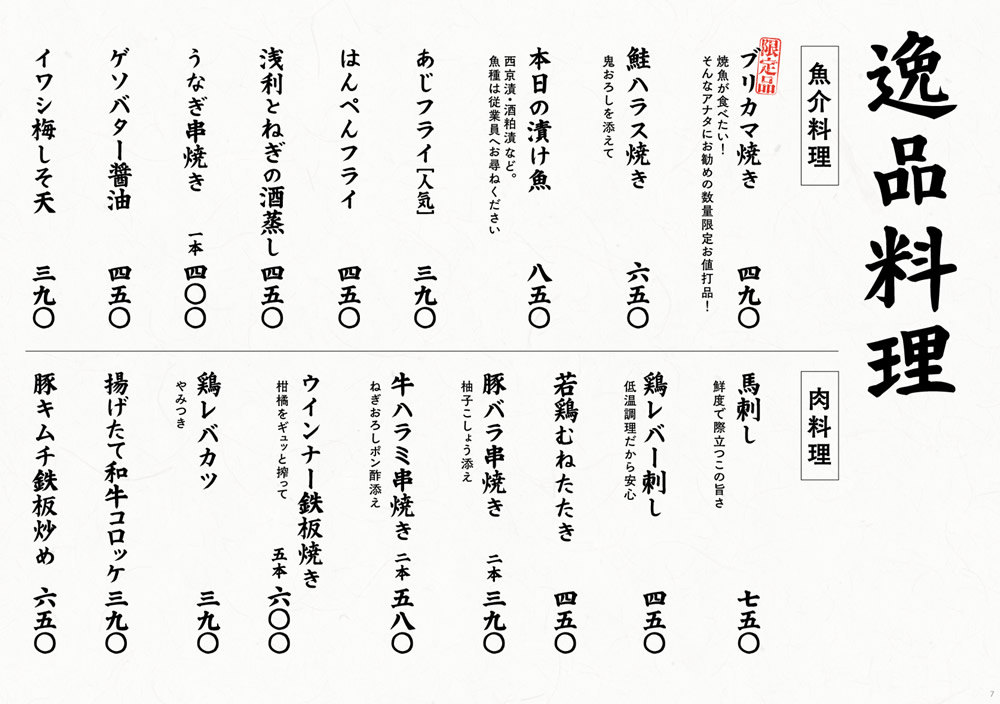 逸品料理
魚介料理
限定品
ブリカマ焼き 四九〇
焼魚が食べたい！
そんなアナタにお勧めの数量限定お値打品！
鮭ハラス焼き 六五〇
鬼おろしを添えて
本日の漬け魚 八五〇
西京漬・酒粕漬など。
魚種は従業員へお尋ねください
あじフライ［人気］ 三九〇
はんぺんフライ 四五〇
浅利とねぎの酒蒸し 四五〇
うなぎ串焼き 一本 四〇〇
ゲソバター醤油 四五〇
イワシ梅しそ天 三九〇
肉料理
馬刺し 七五〇
鮮度で際立つこの旨さ
鶏レバー刺し 四五〇
低温調理だから安心
若鶏むねたたき 四五〇
豚バラ串焼き 二本 三九〇
柚子こしょう添え
牛ハラミ串焼き 二本 五八〇
ねぎおろしポン酢添え
ウインナー鉄板焼き
柑橘をギュッと搾って 五本 六〇〇
鶏レバカツ 三九〇
やみつき
揚げたて和牛コロッケ 三九〇
豚キムチ鉄板炒め 六五〇
7